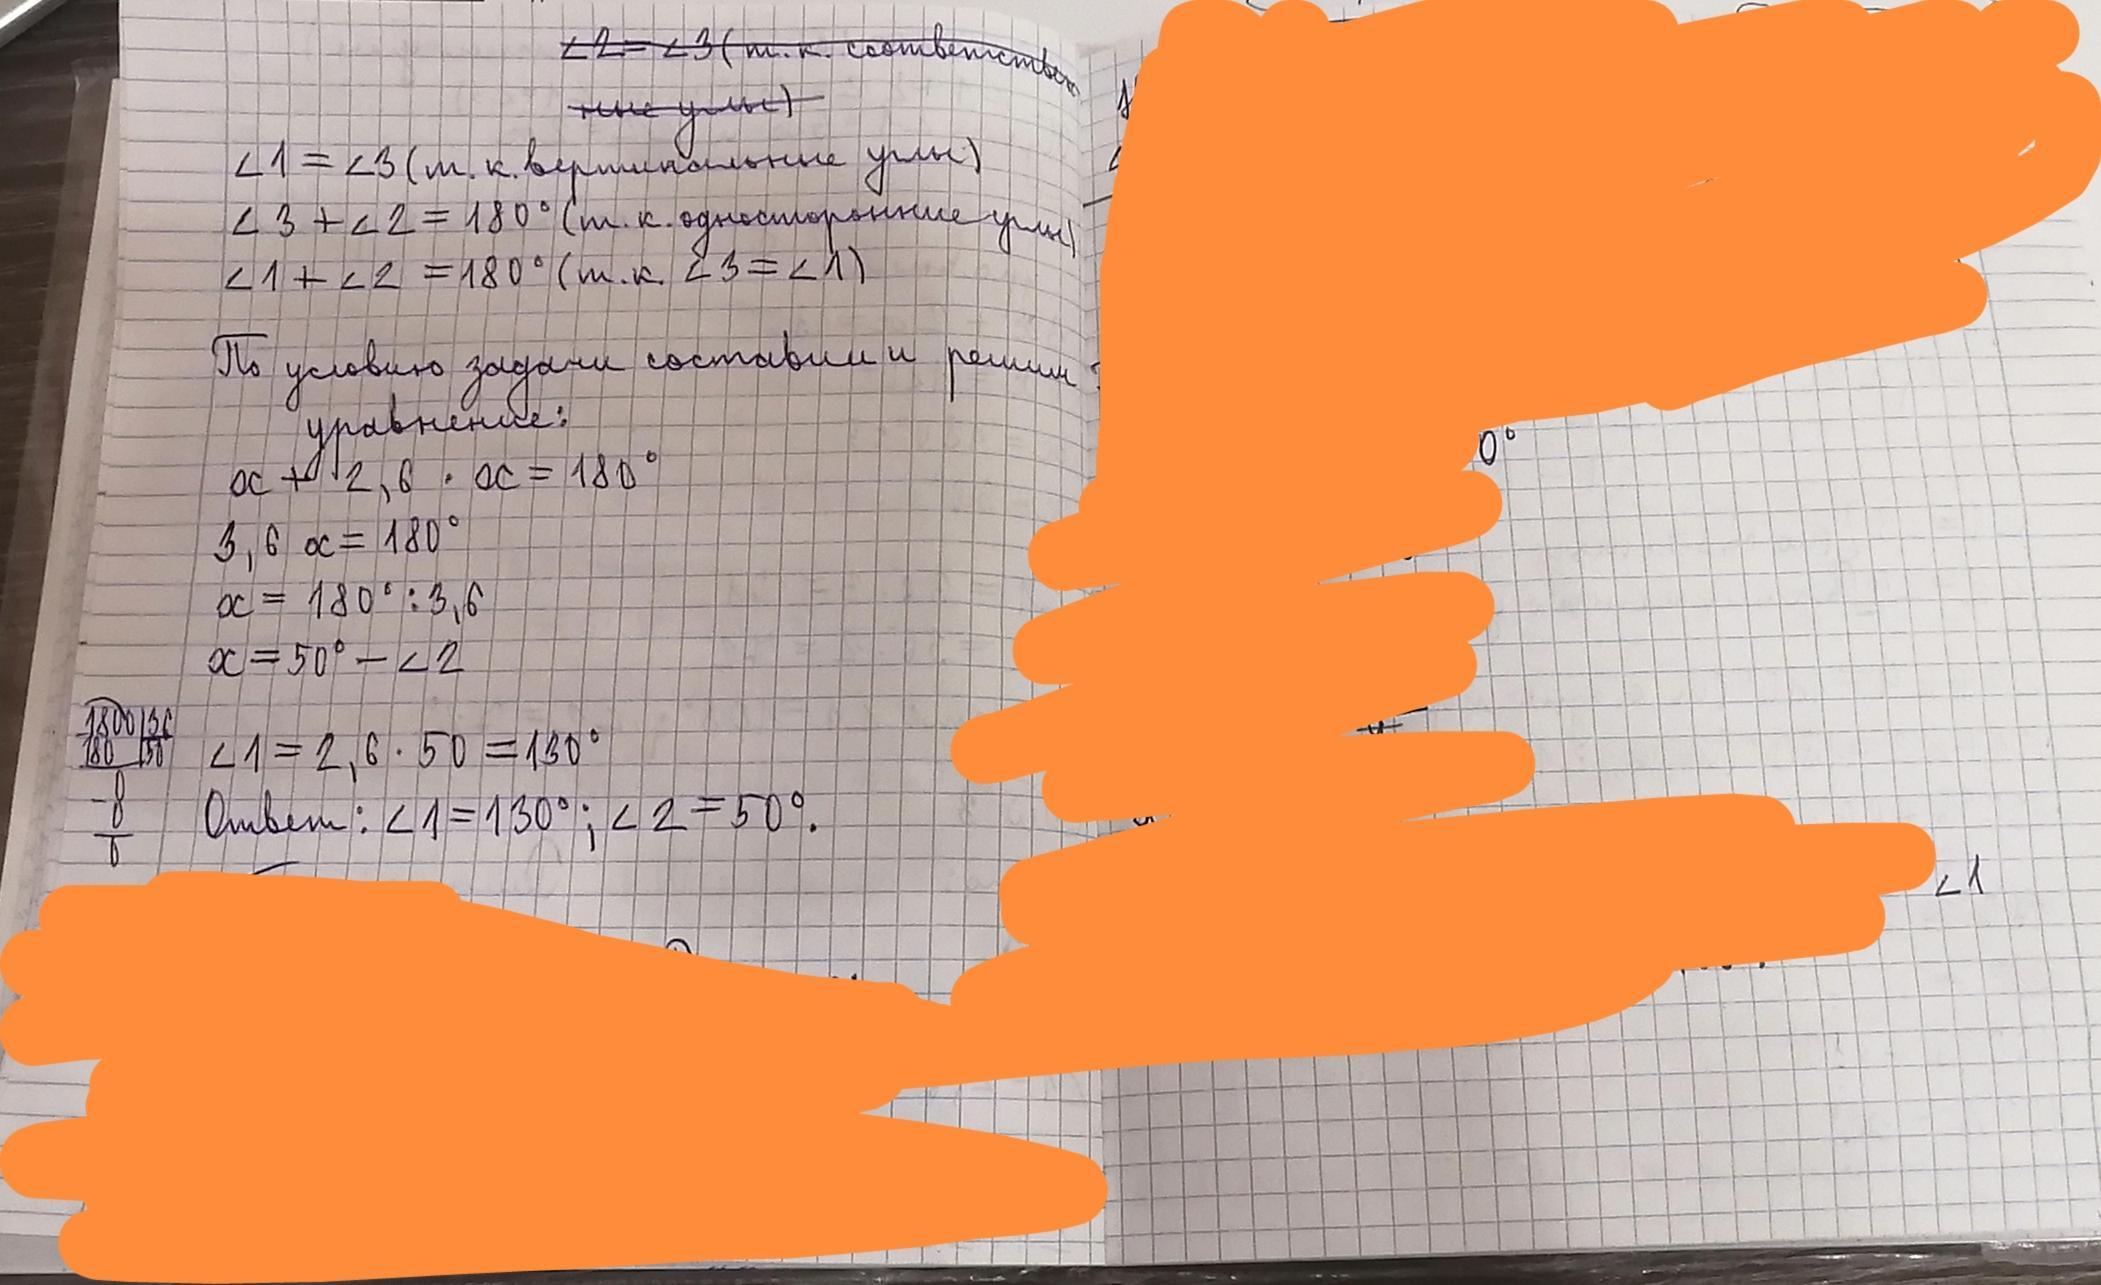 ∠2=∠3(т.к. соответствен
ные углы)
∠1=∠3(т.к. вертикальные углы)
∠3+∠2=180°(т.к. односторонние углы)
∠1+∠2=180°(т.к. ∠3=∠1)
По условию задачи составим и решим
уравнение:
x+2,6·x=180°
3,6x=180°
x=180°:3,6
x=50°-∠2
1800|36
180 |50
∠1=2,6·50=130°
0
Ответ: ∠1=130°; ∠2=50°.
0°
∠1